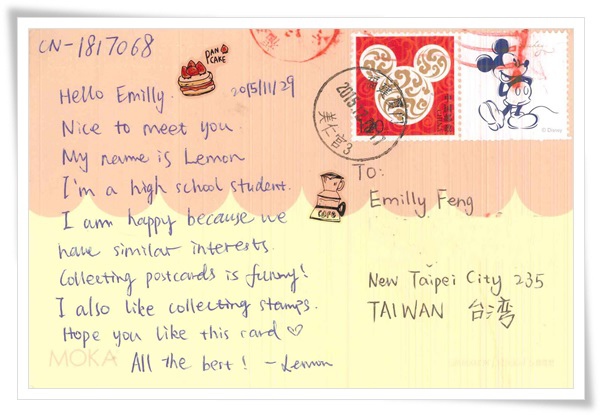 CN-1817068
PAN
CAKE
2015/11/29
Hello Emilly.
Nice to meet you.
My name is Lemon
I'm a high school student.
I am happy because we
have similar interests.
Collecting postcards is funny!
I also like collecting stamps.
Hope you like this card ♡
All the best! - Lemon
MOKA
© Disney
2015.
美仁宫3
To:
Emilly Feng
New Taipei City 235
TAIWAN 台湾